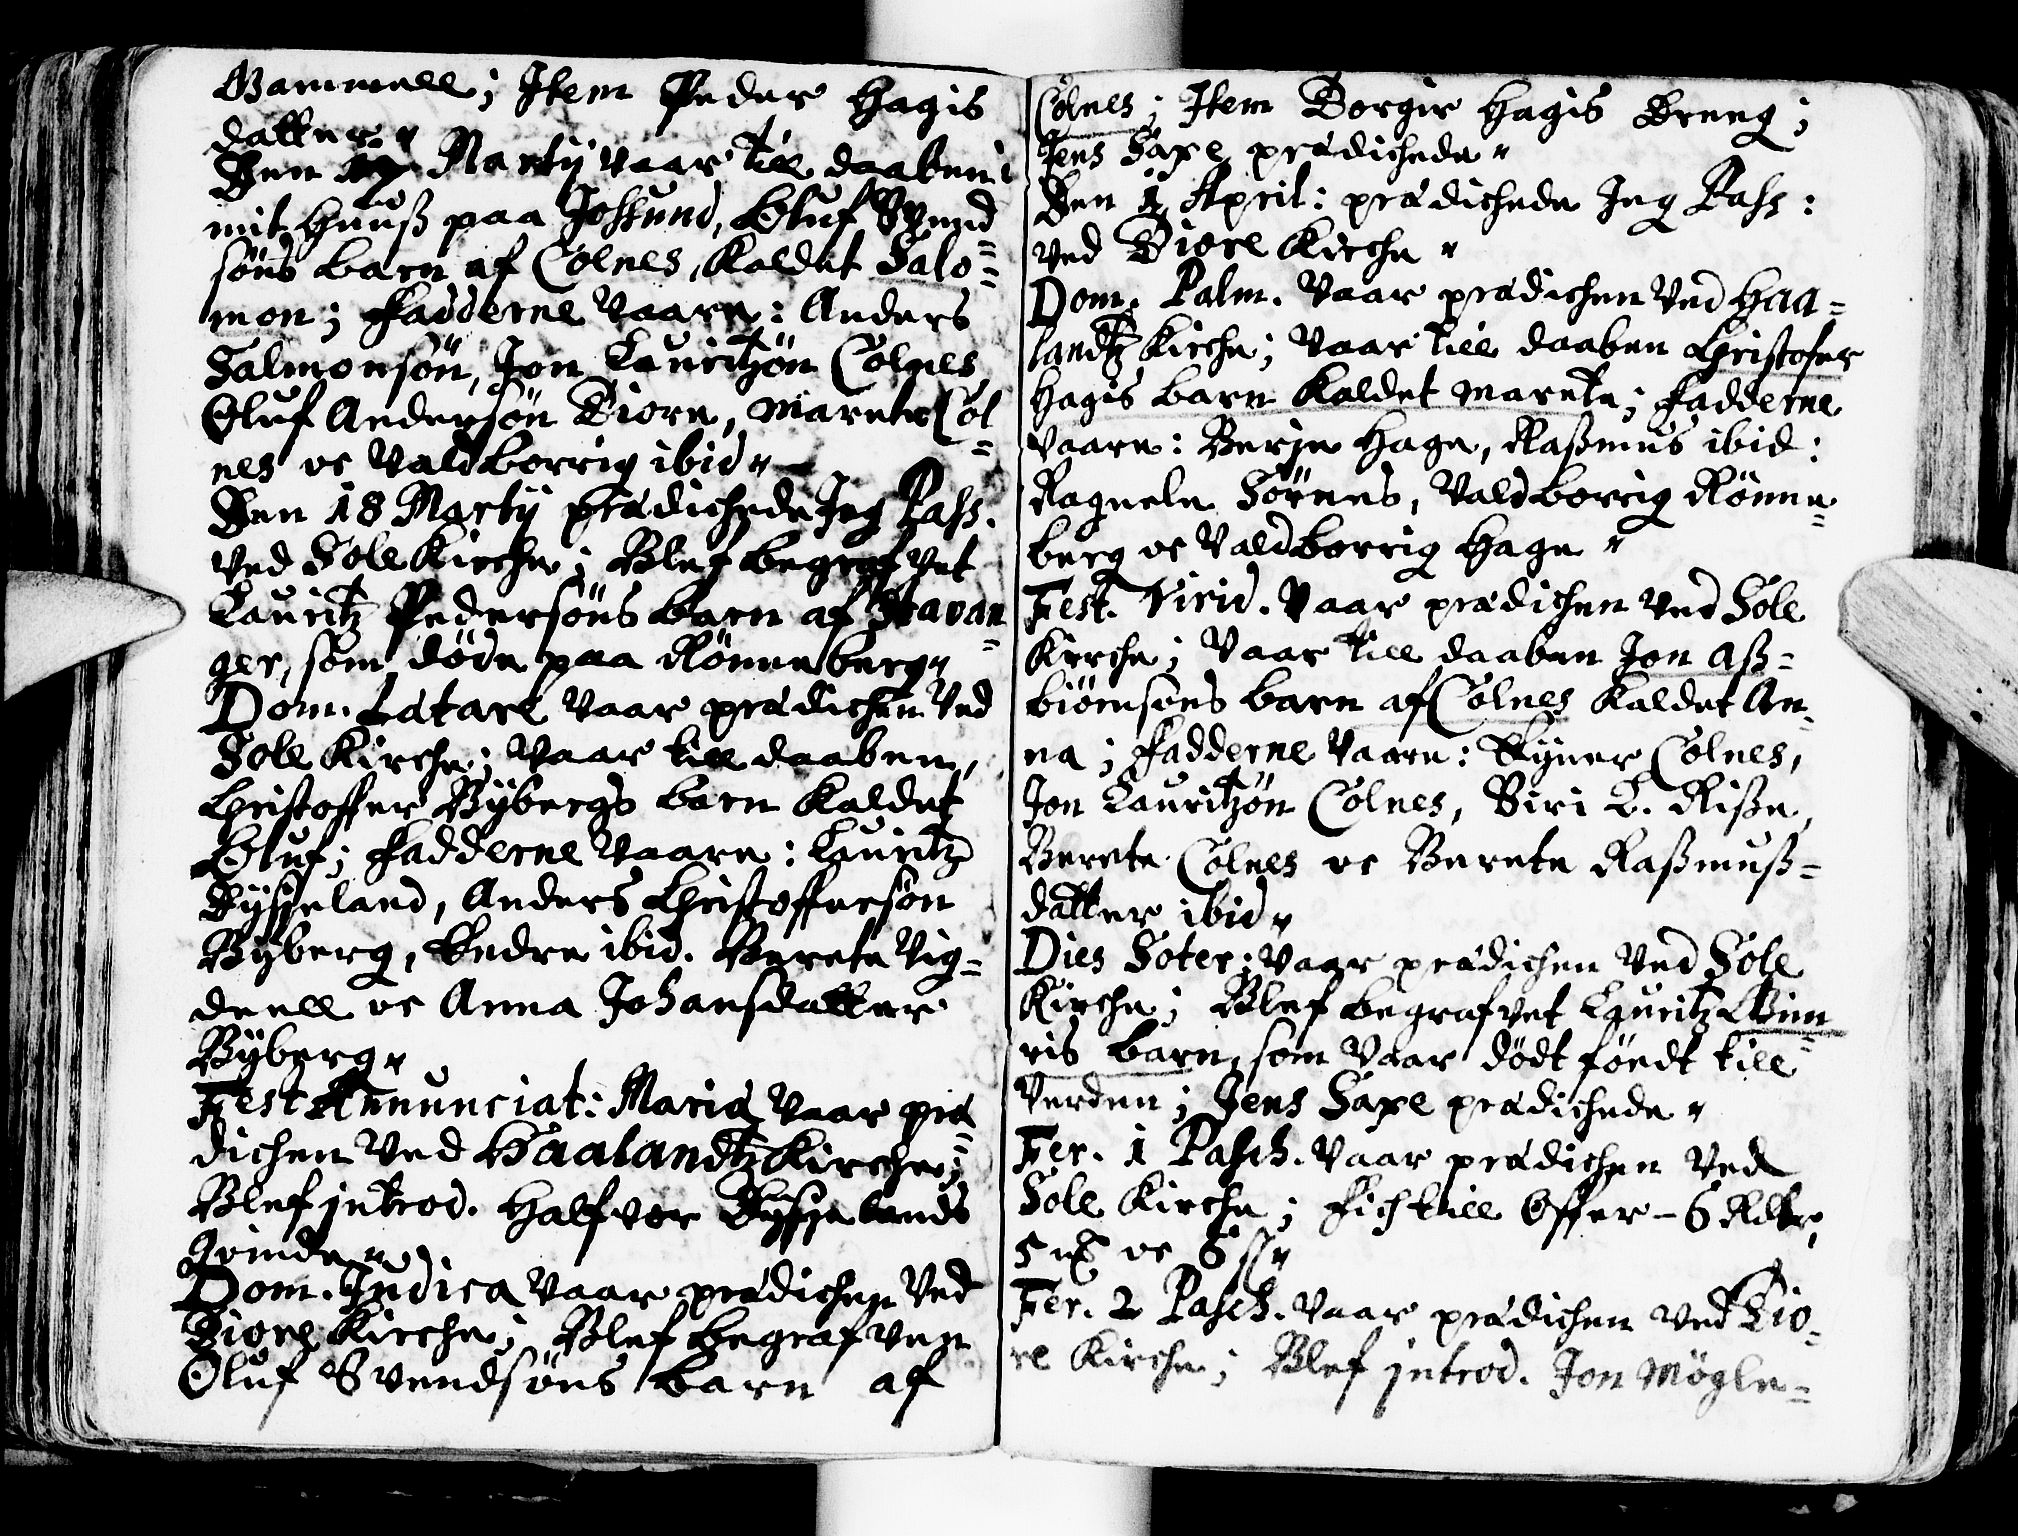 Gammell; Item Peder Hagis
datter"
Den Martij vaar till daaben i
mit Huuß paa Jossund, Oluf Svend=
söns barn af Colnes, kaldet Salo=
mon; Fadderne vaare: Anders
Salmonsön, Jon Lauritzön Colnes
Oluf Andersön Tiore, Marete Col=
nes oc Valdborrig ibid"
Den 18 Martij prædichede Jeg Pass.
ved Sole Kirche; Blef begrafvet
Lauritz Pedersöns barn af Stavan=
ger, som döde paa Rönneberg"
Dom. Lætare vaar prædichen ved
Sole Kirche; vaar till daaben,
Christoffer Bÿbergs barn kaldet
Oluf; Fadderne vaare: Lauritz
Rÿsseland, Anders Christoffersön
Bÿberg, Endre ibid. Berete Vig=
deell oc Anna Johansdatter
Bÿberg"
Fest Annunciat: Mariæ vaar præ=
dichen ved Haalandtz Kirche;
Blef introd. Halfvor Rÿsselands
Qvinde"
Dom. Judica vaar prædichen ved
Tiore Kirche; Blef begrafven
Oluf Svendsöns barn af
Colnes; Item Borgir Hagis Dreng;
Jens Saxe prædichede"
Den 1 April: prædichede Jeg Pass:
ved Tiore Kirche"
Dom. Palm. vaar prædichen ved Haa=
landtz Kirche; vaar till daaben Christofer
Hagis barn kaldet Marete; Fadderne
vaare: Berje Hage, Raßmus ibid:
Ragnele Sörnes, Valdborrig Rönne=
berg oc Valdborrig Hage"
Fest. Virid. vaar prædichen ved Sole
Kirche; vaar till daaben Jon Aß=
biörnsöns barn af Colnes kaldet An=
na; Fadderne vaare: Eÿner Colnes,
Jon Lauritzön Colnes, Siri L. Riße,
Berete Colnes oc Berete Raßmuß=
datter ibid"
Dies Soter: vaar prædichen ved Sole
Kirche; Blef begrafvet Lauritz
ris barn, som vaar födt till
Verden; Jens Saxe prædichede"
Fer. 1 Pasch. vaar prædichen ved
Sole Kirche; Fich till Offer - 6 Rdlr,
5 oc 6 ss"
Fer. 2 Pasch. vaar prædichen ved Tio=
re Kirche; Blef introd. Jon Mögle=